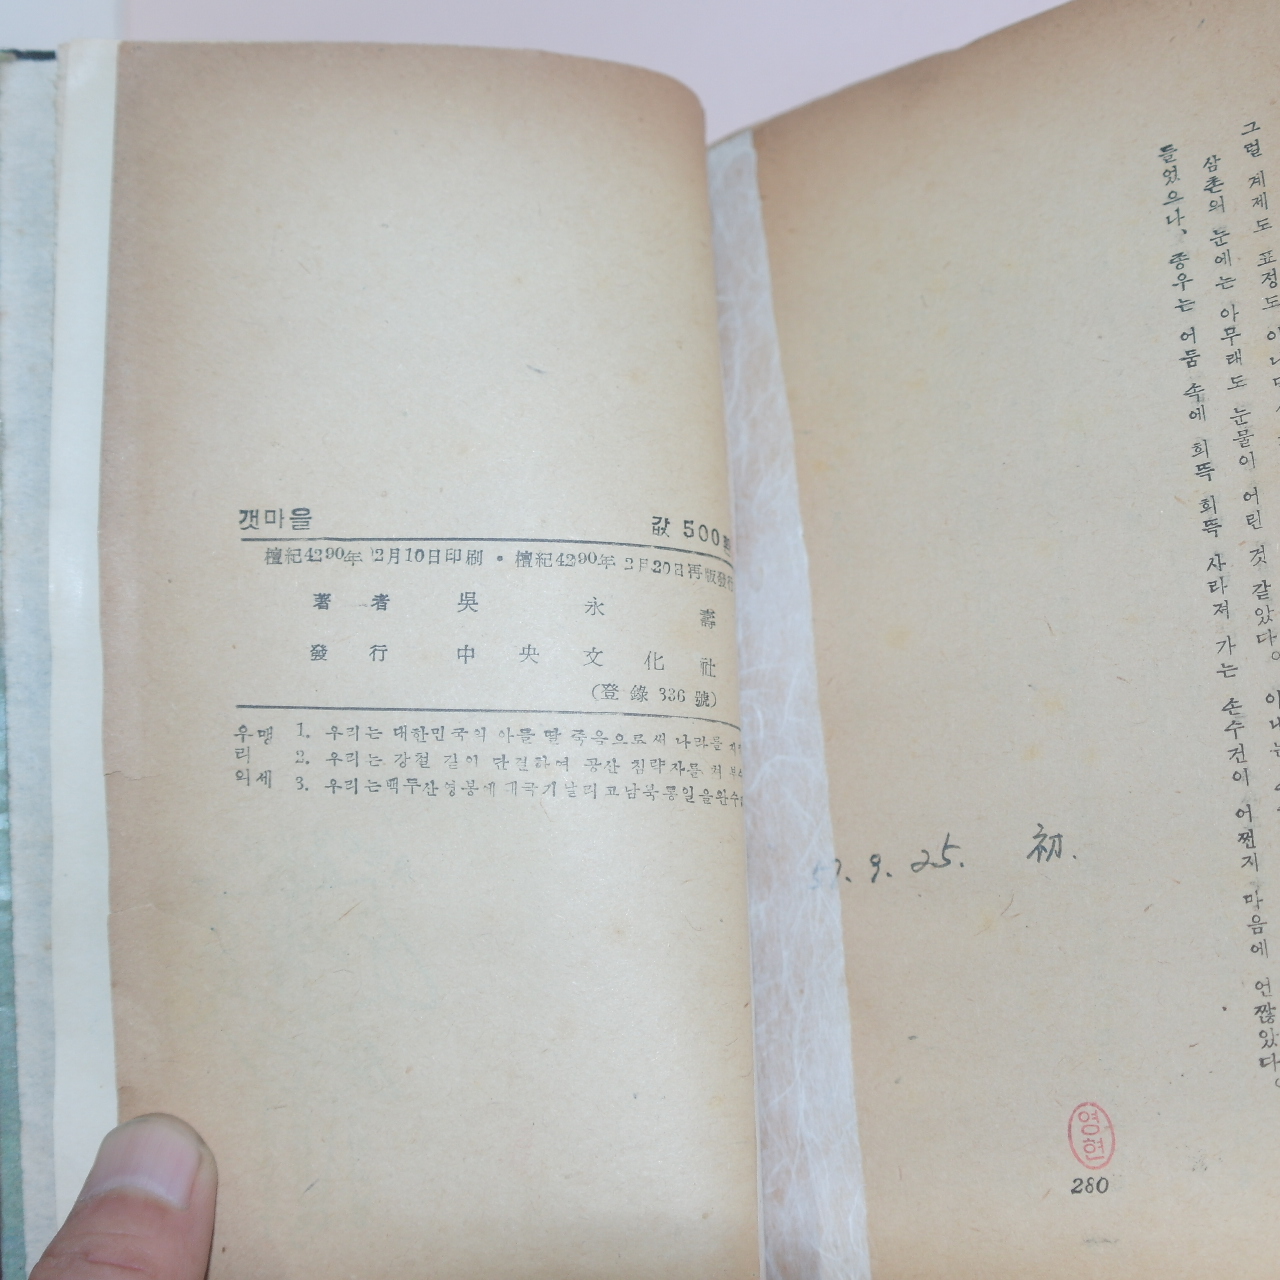 갯마을
값 500
檀紀4290年 2月10日印刷 • 檀紀4290年 2月20日再版發行
著者 吳永壽
發行 中央文化社
(登錄 336 號)
우리의 맹세
1. 우리는 대한민국의 아들 딸 죽음으로써 나라를
2. 우리는 강철 같이 단결하여 공산 침략자를 쳐
3. 우리는 백두산 영봉에 태극기 날리고 남북통일을 완수
그럴 계제도 표정도
삼촌의 눈에는 아무래도 눈물이 어린 것 같았다。
들었으나、종우는 어둠 속에 희뜩 희뜩 사라져 가는 손수건이 어쩐지 마음에 언짢았다。
57. 9. 25. 初.
영현
280